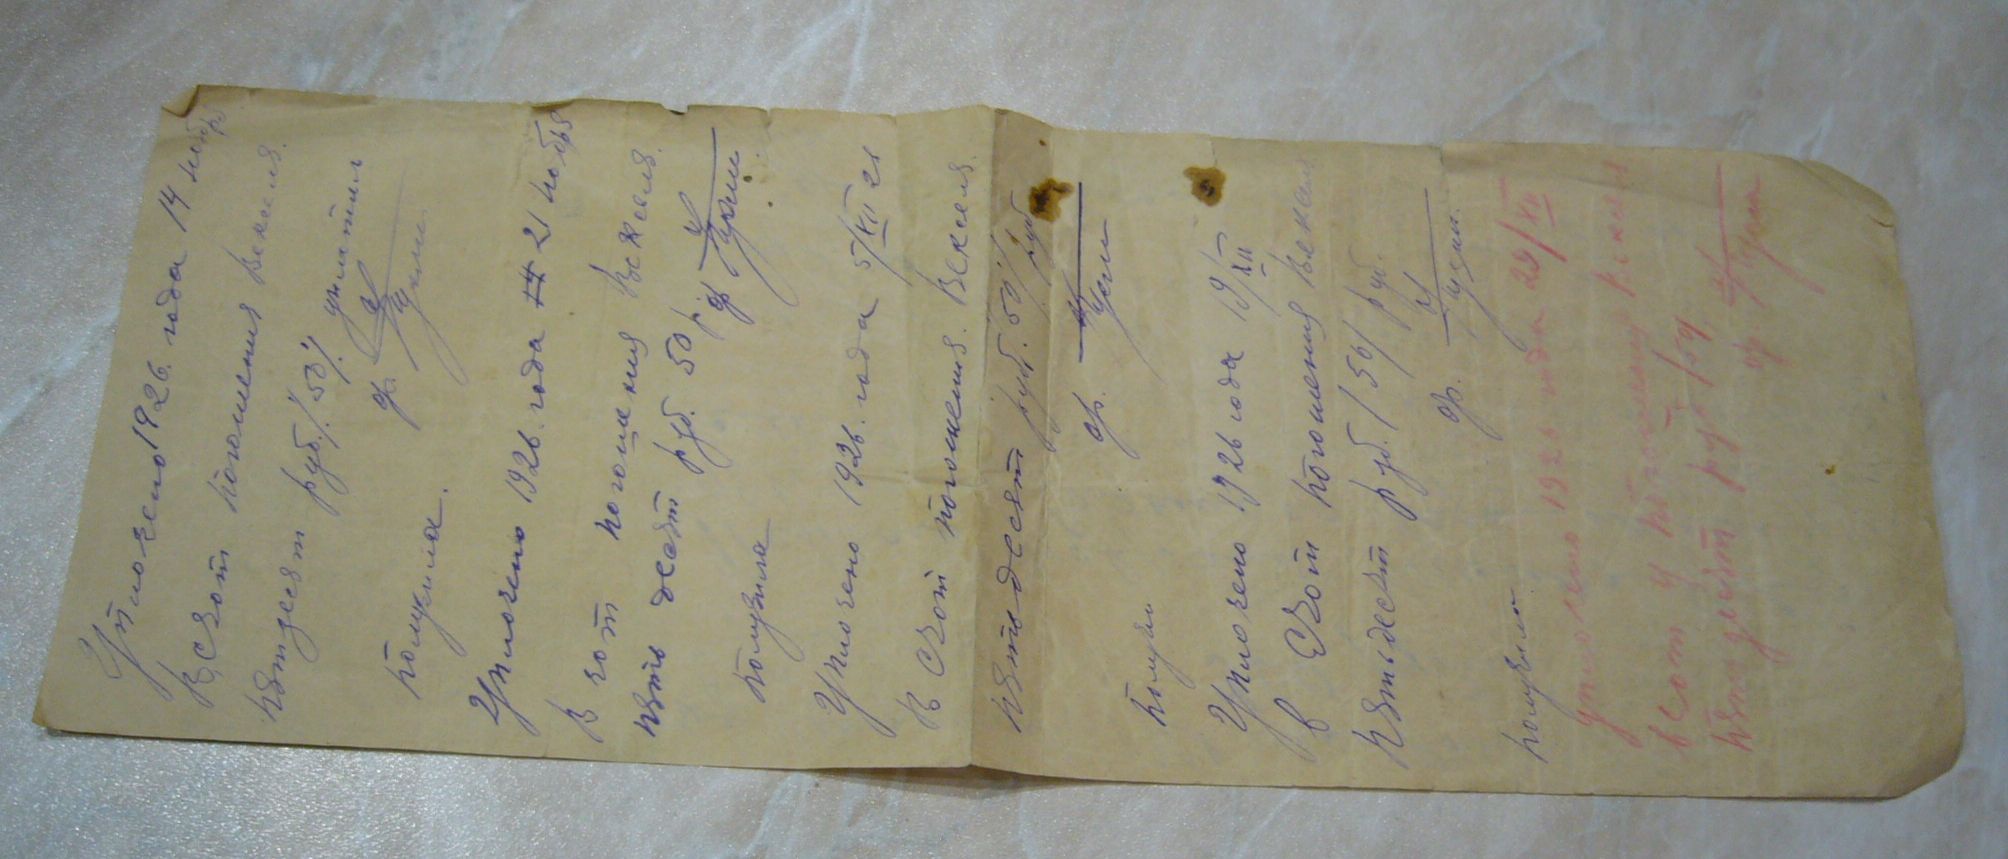 Уплочено 1926. года 14 нояб
В счот погошения векселя.
пятдесят руб. /50/. уплатил
получила.
Уплочено 1926. года 21 нояб
В чот погошения векселя.
пять десят руб. 50
получила
Уплочено 1926. года 5/XII 26
В счот погошения. Векселя.
пять десят руб. 50/ руб
получил
Уплочено 1926 года 19/XII
в счот погошения векселя
пятьдесят руб. /50/ руб.
получила
уплочено 1926 года 29/XII
в счот погошения векселя
пятдесят руб /50/